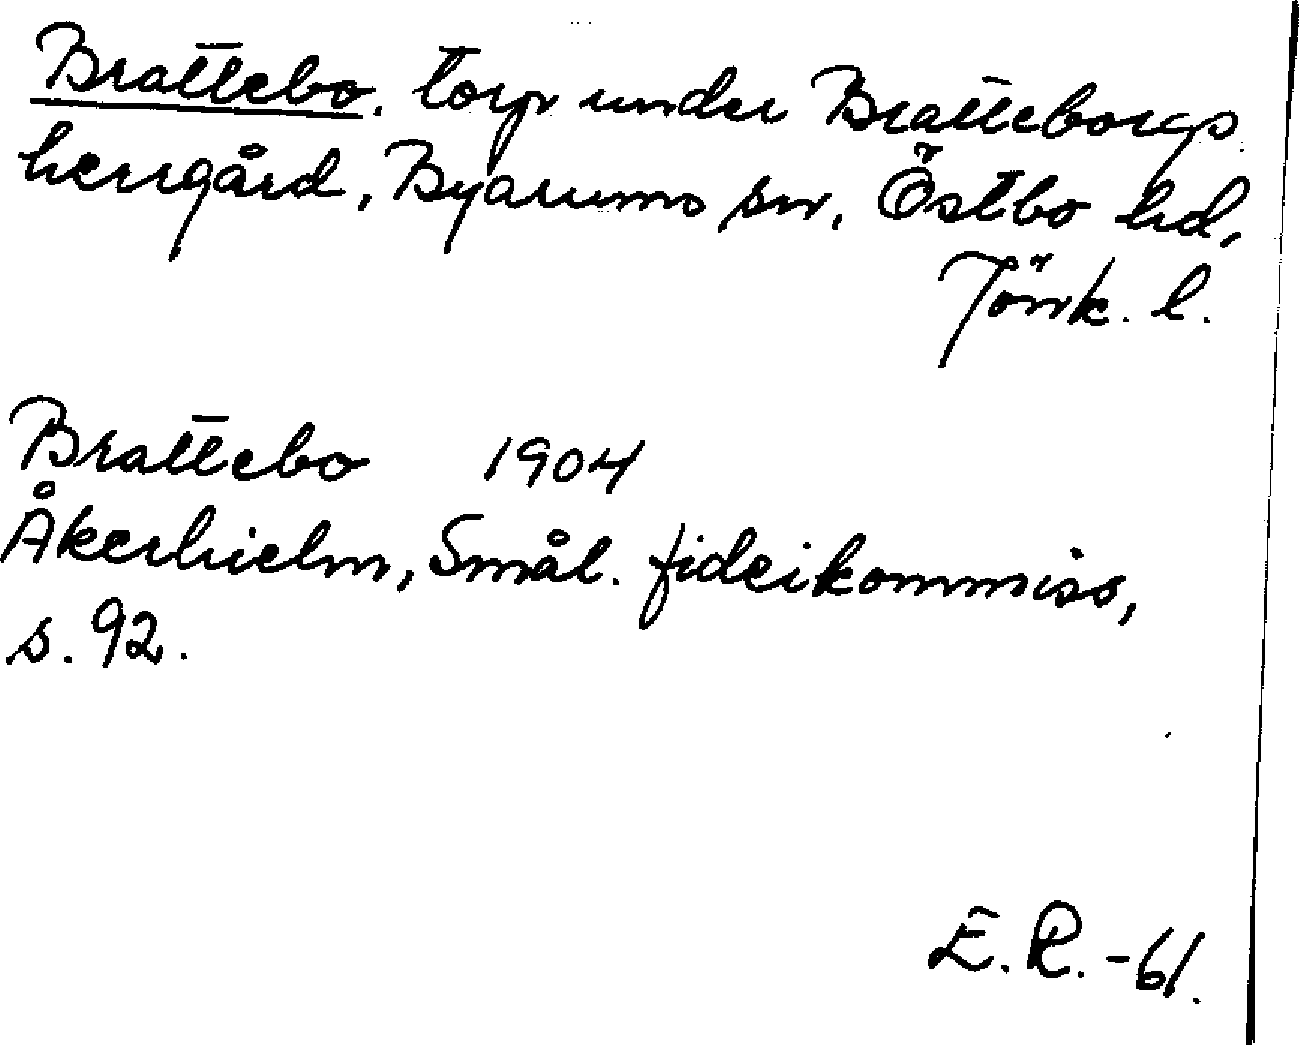 Brattebo. torp under Bratteborgs
herrgård, Byarums sn, Östbo hd,
Jönk. l.
Brattebo 1904
Åkerhielm, Smål. fideikommiss,
s. 92.
E. R. -61.